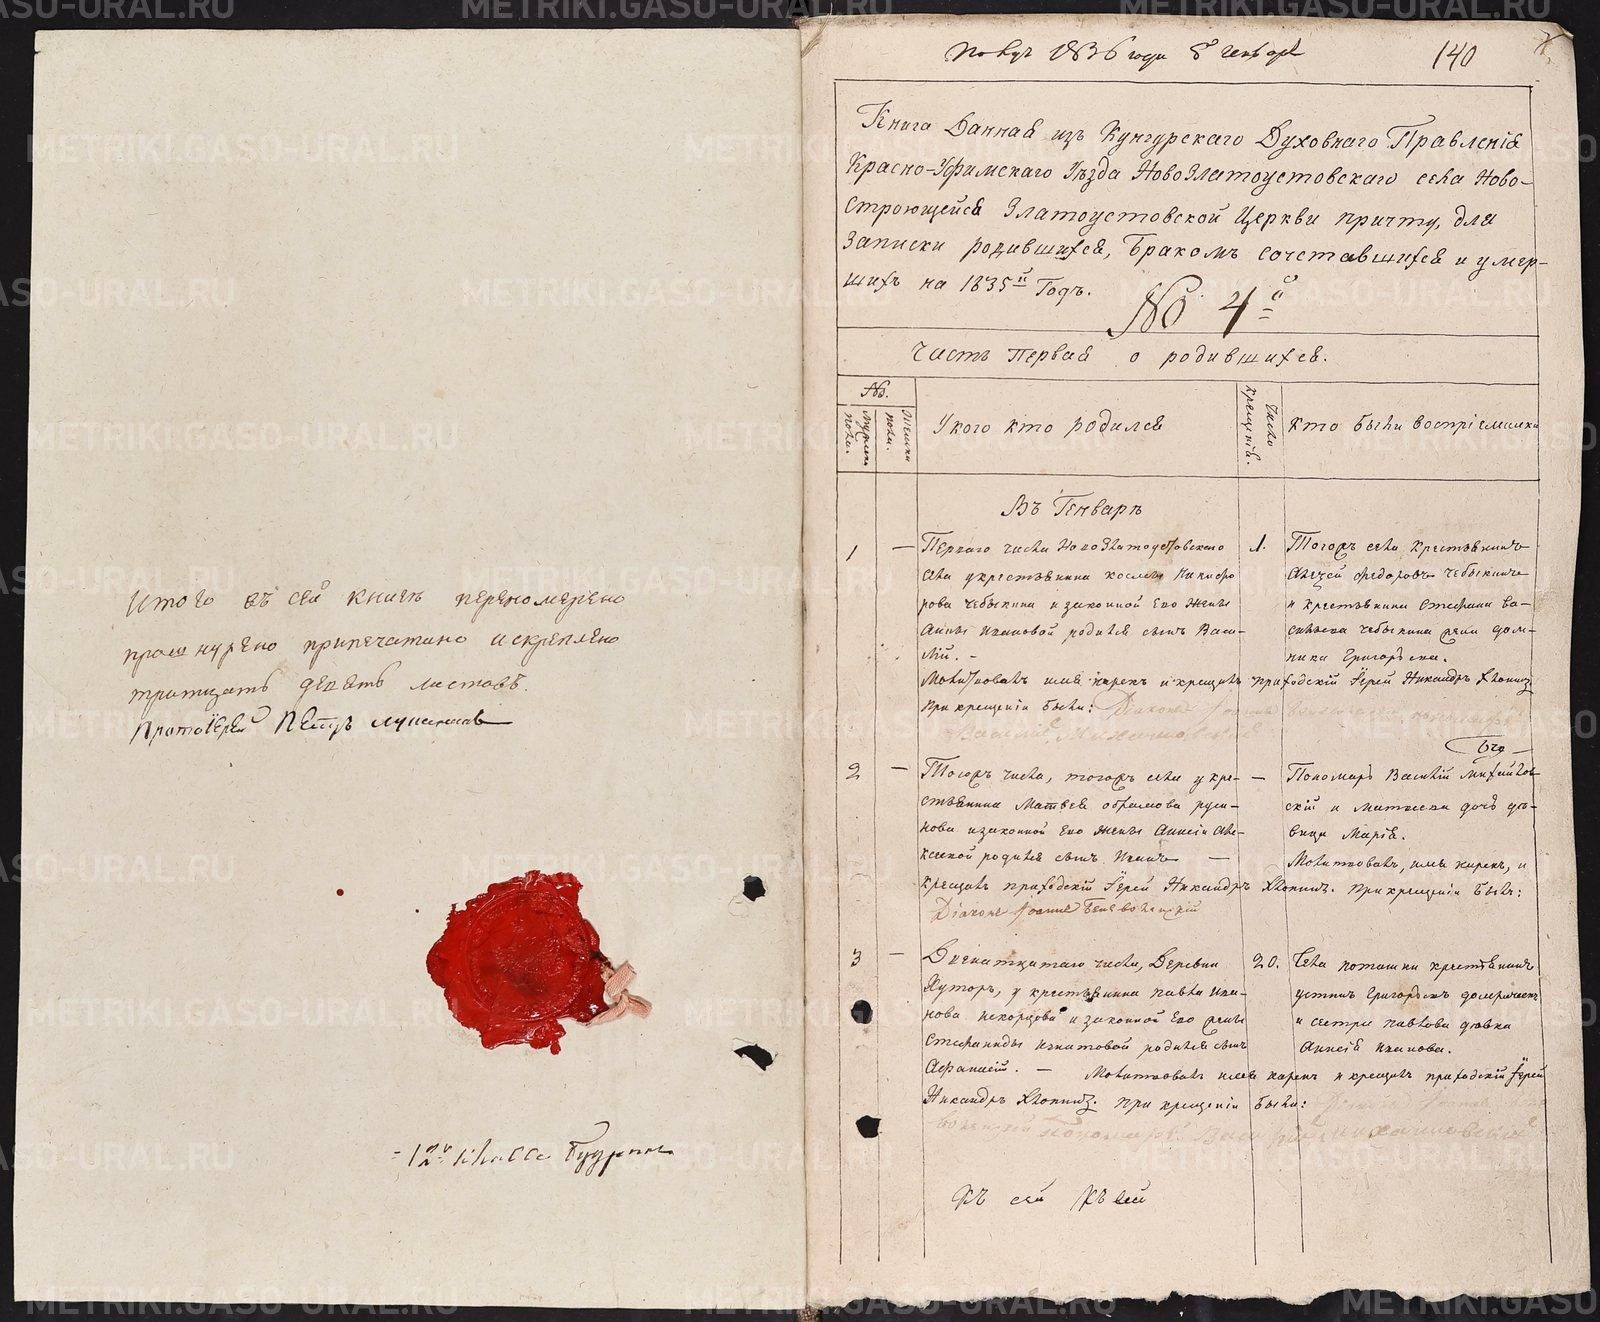 Итого въ сей книгѣ перномерено
прошнурено припечатано искреплено
тритцать девять листовъ.
Протоіерей Петръ
12 класса
1836 года 8 Генваря
140
Книга Данная изъ Кунгурскаго Духовнаго Правленія
Красно-Уфимскаго Уѣзда НовоЗлатоустовскаго села Ново-
строющейся Златоустовской Церкви причту, для
Записки родившихся, Бракомъ сочетавшихся и умер-
шихъ на 1835й Годъ.
№ 4й
Часть Первая о родившихся.
№.
Мужска пола.
Женска пола.
У кого кто родился
Число крещенія.
Кто были воспріемники
Въ Генварѣ
1
Перваго числа НовоЗлатоустовскаго
села укрестьянина Космы Никифо
рова Чебыкина и законной Его Жены
Анны Ивановой родился сынъ Васи-
лій. -
Молитвовалъ имя нарекъ и крещалъ приходскій Іерей Никандръ Хлопинъ
При крещеніи были: Діаконъ Іоаннъ
1.
Тогожъ села Крестьянинъ
Алексѣй Федоровъ Чебыкинъ
и Крестьянина Стефана Ва-
сильева Чебыкина жена Дом-
ника Григорьева.
2
Тогожъ числа, тогожъ села у кре-
стьянина Матвея
нова изаконной Его Жены Анисіи Але-
ксеевой родился сынъ Иванъ
Крещалъ приходскій Іерей Никандръ Хлопинъ. При крещеніи былъ:
Діаконъ Іоаннъ Боневоленскій
Пономарь Василій Михайлов-
скій и Матвеева дочь дѣ-
вица Марія.
Молитвовалъ, имя нарекъ, и
3
Двенатцатаго числа, Деревни
Хуторъ, у крестьянина Павла Ива-
нова и законной Его жены
Стефаниды Игнатовой родился сынъ
Афанасій. - Молитвовалъ имя нарекъ и крещалъ приходскій Іерей
Никандръ Хлопинъ. При крещеніи были:
20.
Села Поташки крестьянинъ
Устинъ Григорьевъ
и сестра Павлова дѣвка
Анисія Иванова.
Къ сей